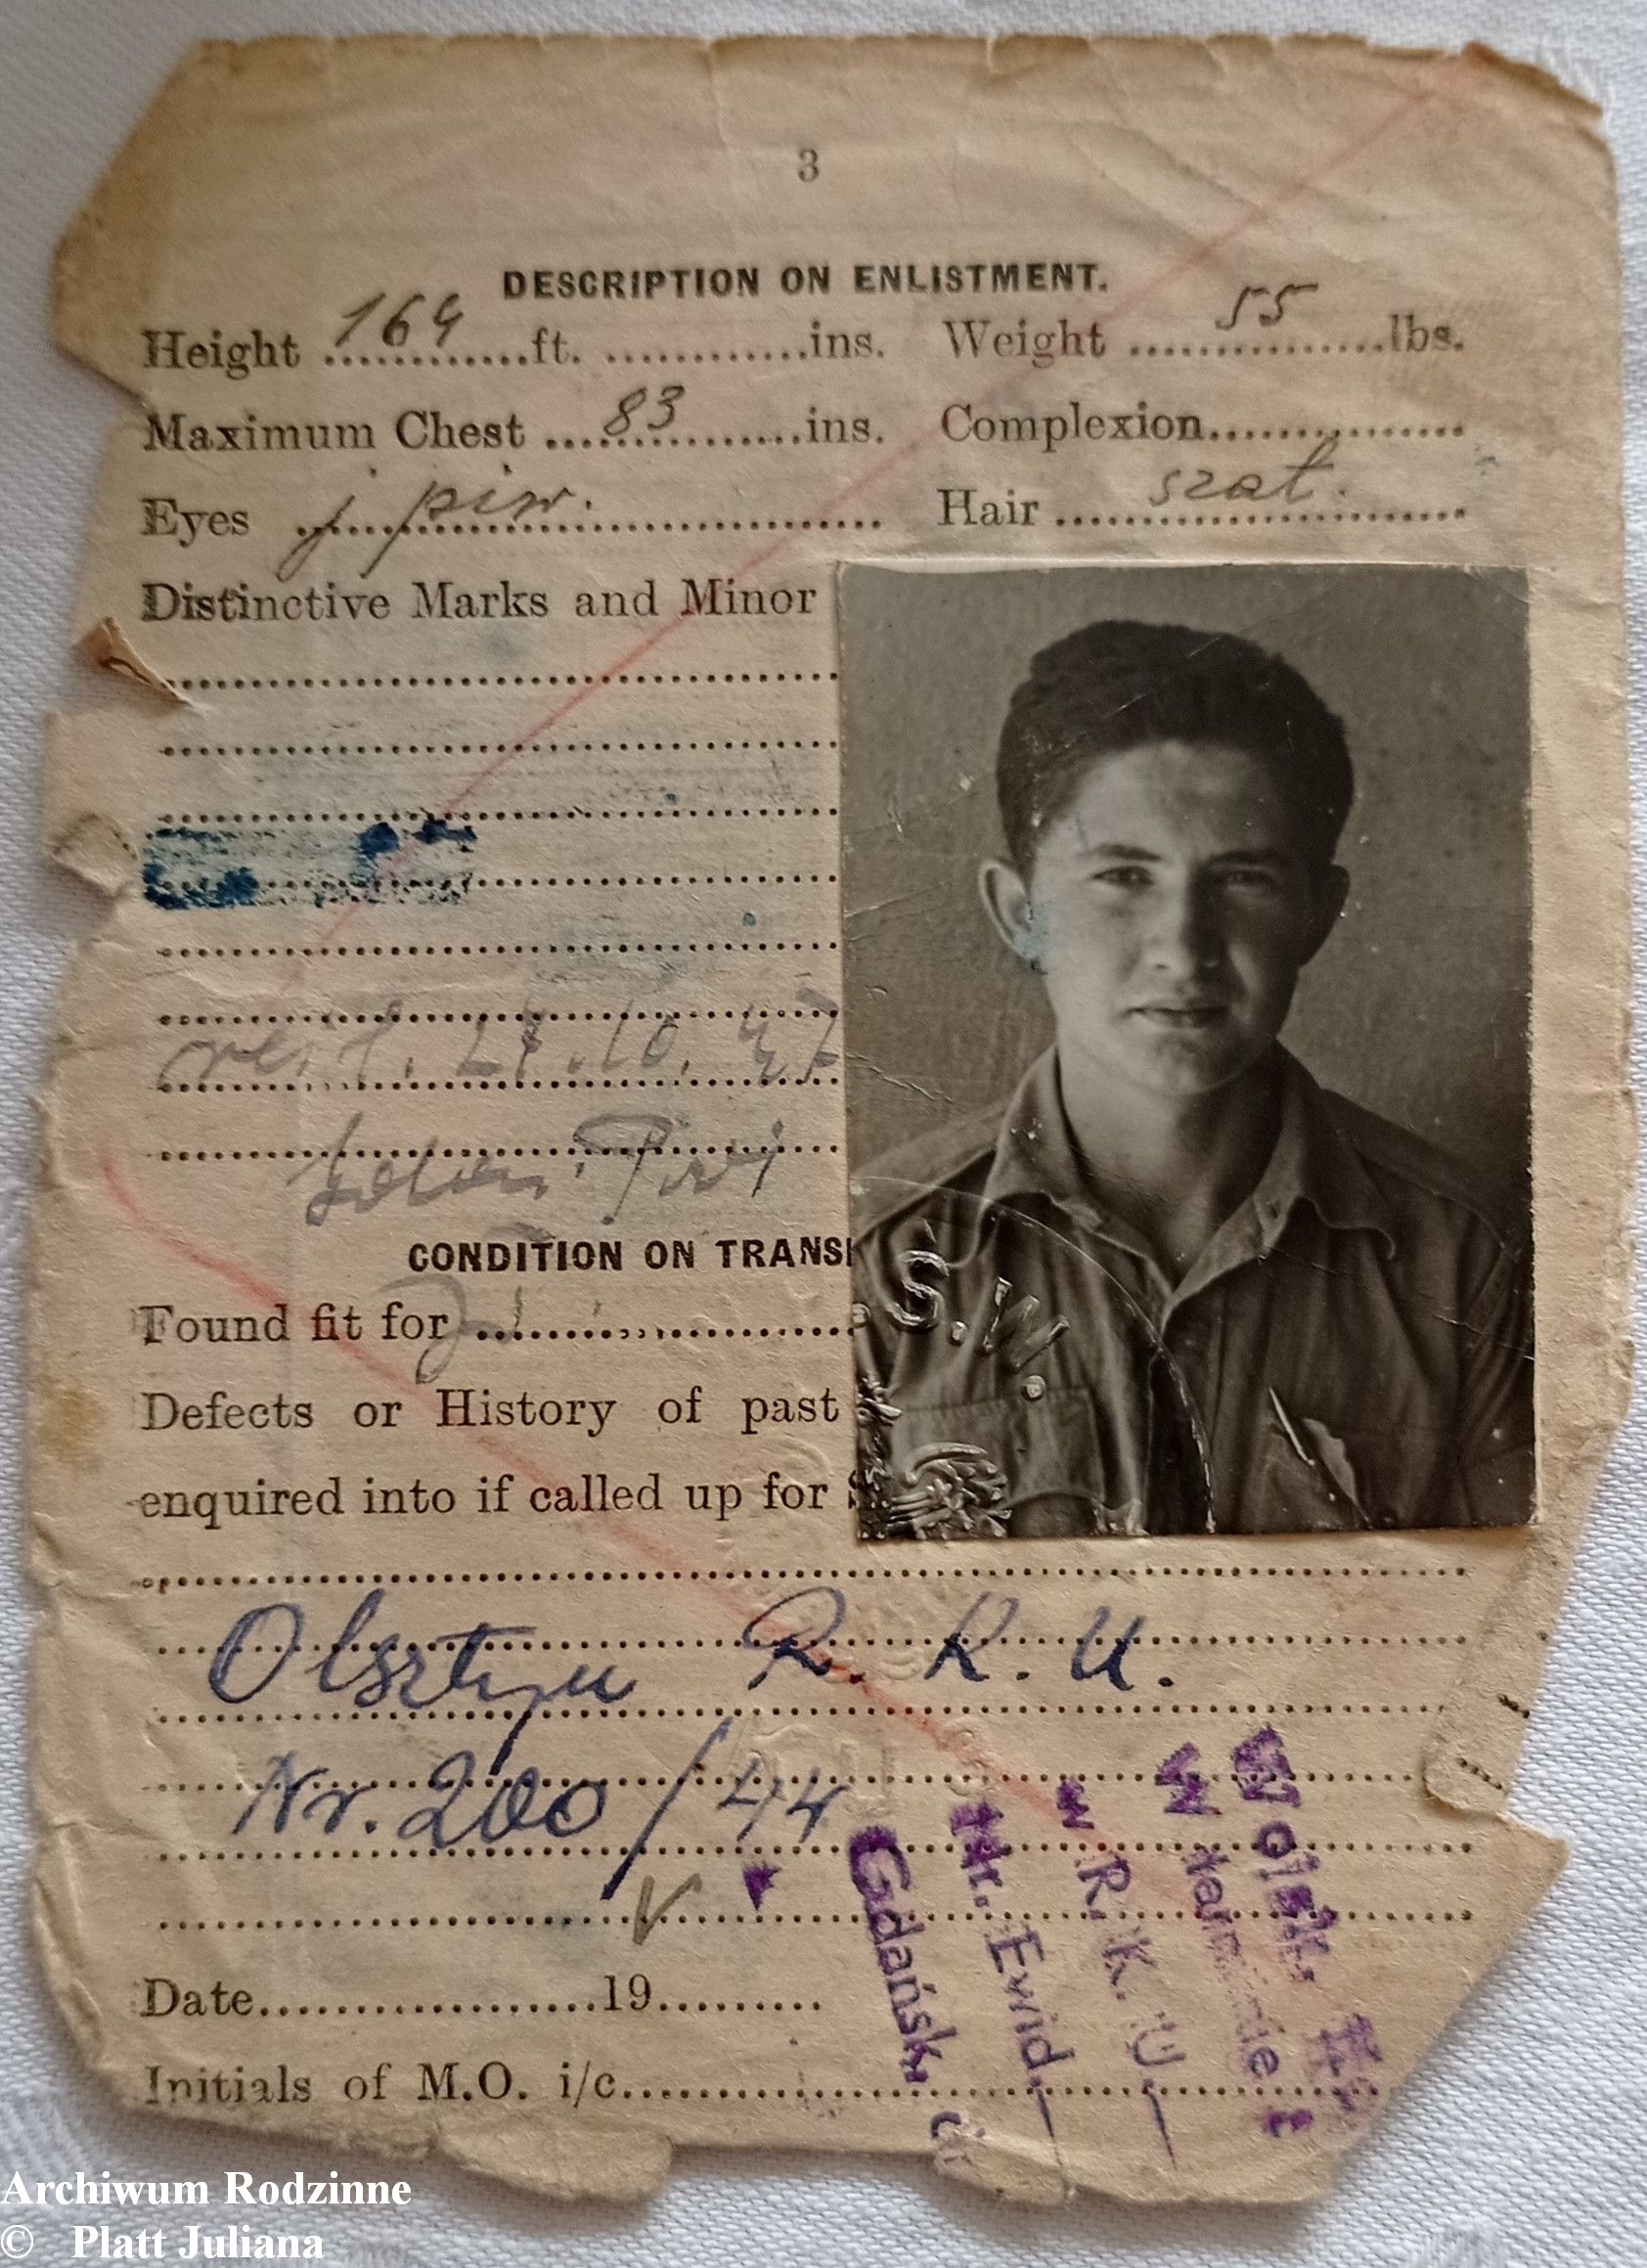 3
DESCRIPTION ON ENLISTMENT.
Height 164 ft. ins. Weight 55 lbs.
Maximum Chest 83 ins. Complexion
Eyes j piw. Hair szat.
Distinctive Marks and Minor
10. 47
CONDITION ON TRANS
Found fit for
Defects or History of past
enquired into if called up for
Olsztyn R.K.U.
Nr. 200/44
Date 19
Initials of M.O. i/c
S.W.
Gdańsk,
Nr. Ewid.
w R. K. U.
Archiwum Rodzinne
© Platt Juliana